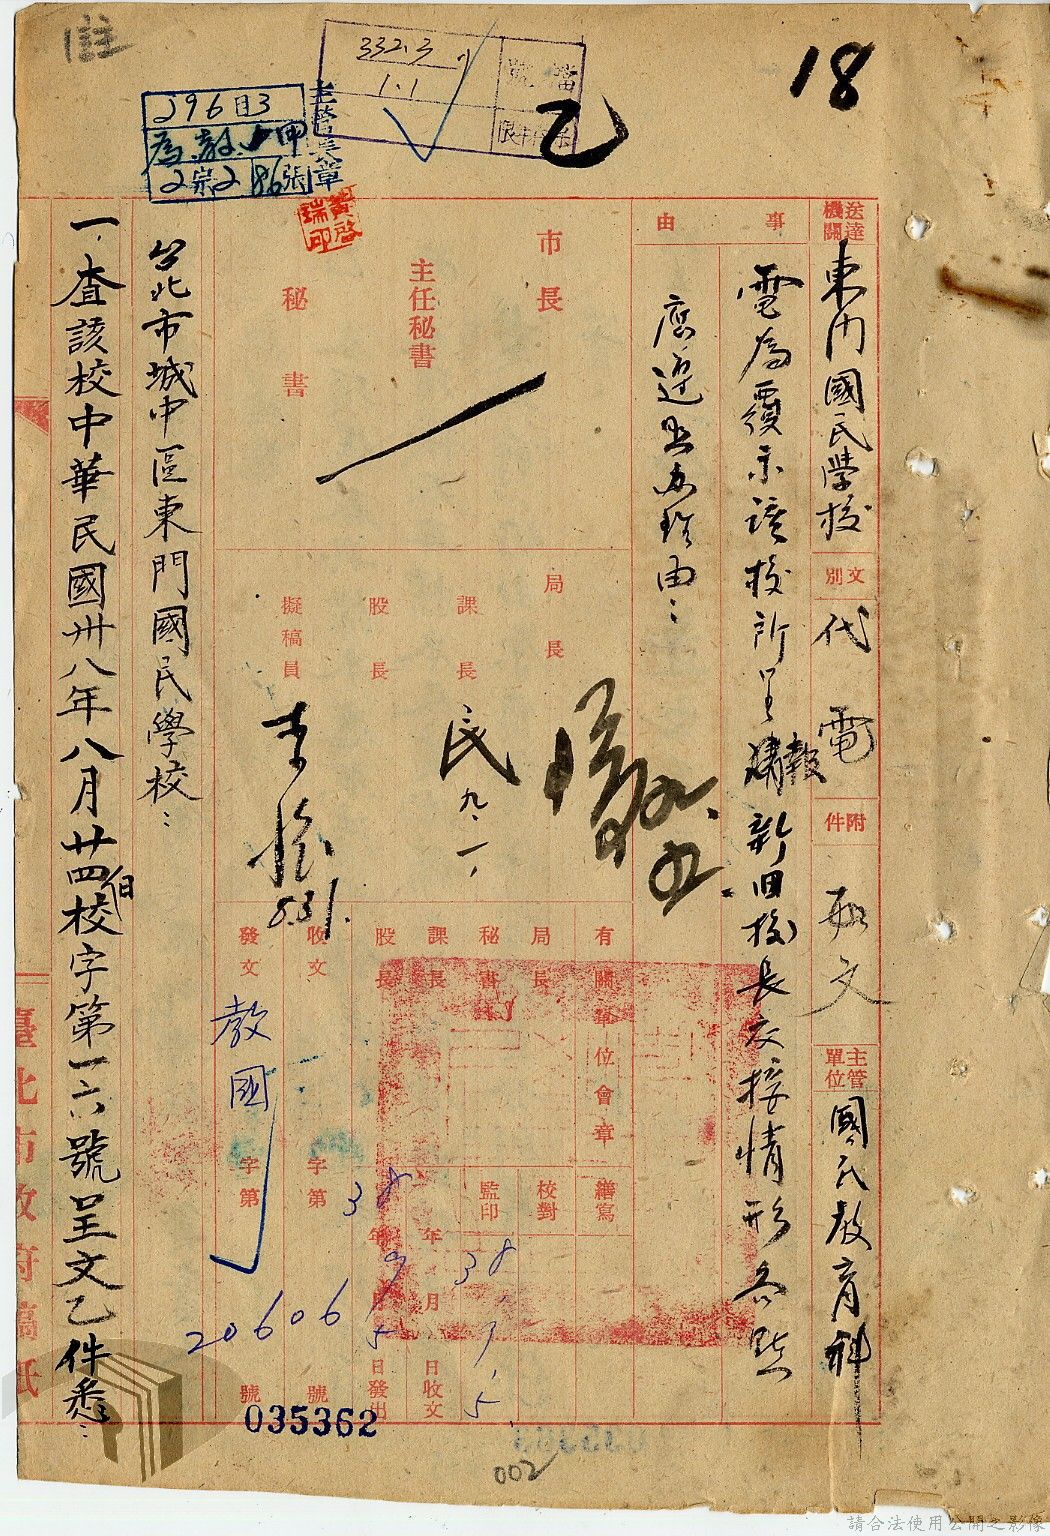 18
332.3
1.1
檔號
乙
296目3
2宗2
86張
主管蓋章
黃啓瑞印
送達機關
東門國民學校
文別
代電
附件
如文
主管單位
國民教育科
事由
電為覆示該校所呈報新旧校長交接情形各點
應迅即辦理由
市長
主任秘書
秘書
局長
課長
民
九、一、
股長
擬稿員
8.31.
有關單位會章
局長
秘書
課長
股長
繕寫
校對
監印
38年9月5日收文
38年9月5日發出
收文
字第
號
發文
教國
字第
20606
號
035362
台北市城中區東門國民學校：
一、查該校中華民國卅八年八月廿四日校字第一六號呈文乙件悉：
臺北市政府稿紙
002
請合法使用公開之影像